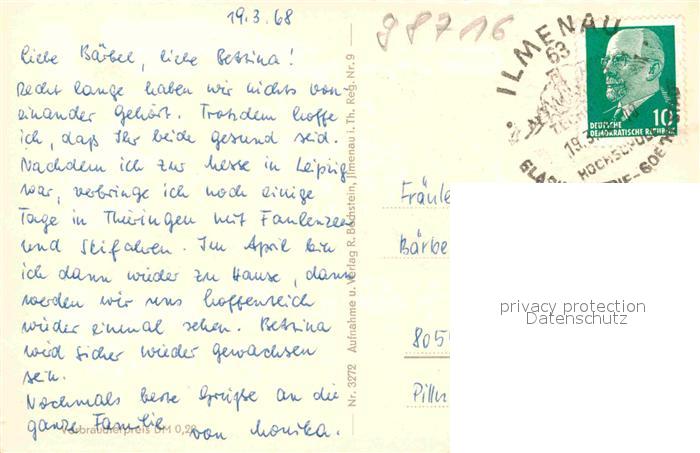 19.3.68
98716
Liebe Bärbel, liebe Bettina!
Recht lange haben wir nichts von
einander gehört. Trotzdem hoffe
ich, daß Ihr beide gesund seid.
Nachdem ich zur Messe in Leipzig
war, verbringe ich noch einige
Tage in Thüringen mit Faulenzen
und Skifahren. Im April bin
ich dann wieder zu Hause, dann
werden wir uns hoffentlich
wieder einmal sehen. Bettina
wird sicher wieder gewachsen
sein.
Nochmals beste Grüße an die
ganze Familie von Monika.
Verbraucherpreis DM 0,20
Nr. 3272 Aufnahme u. Verlag R. Bechstein, Jlmenau i. Th. Reg. Nr. 9
ILMENAU
63
19.3.
HOCHSCHUL
10
DEUTSCHE
DEMOKRATISCHE REPUBLIK
Fräule
Bärbe
805
Pilln
privacy protection
Datenschutz